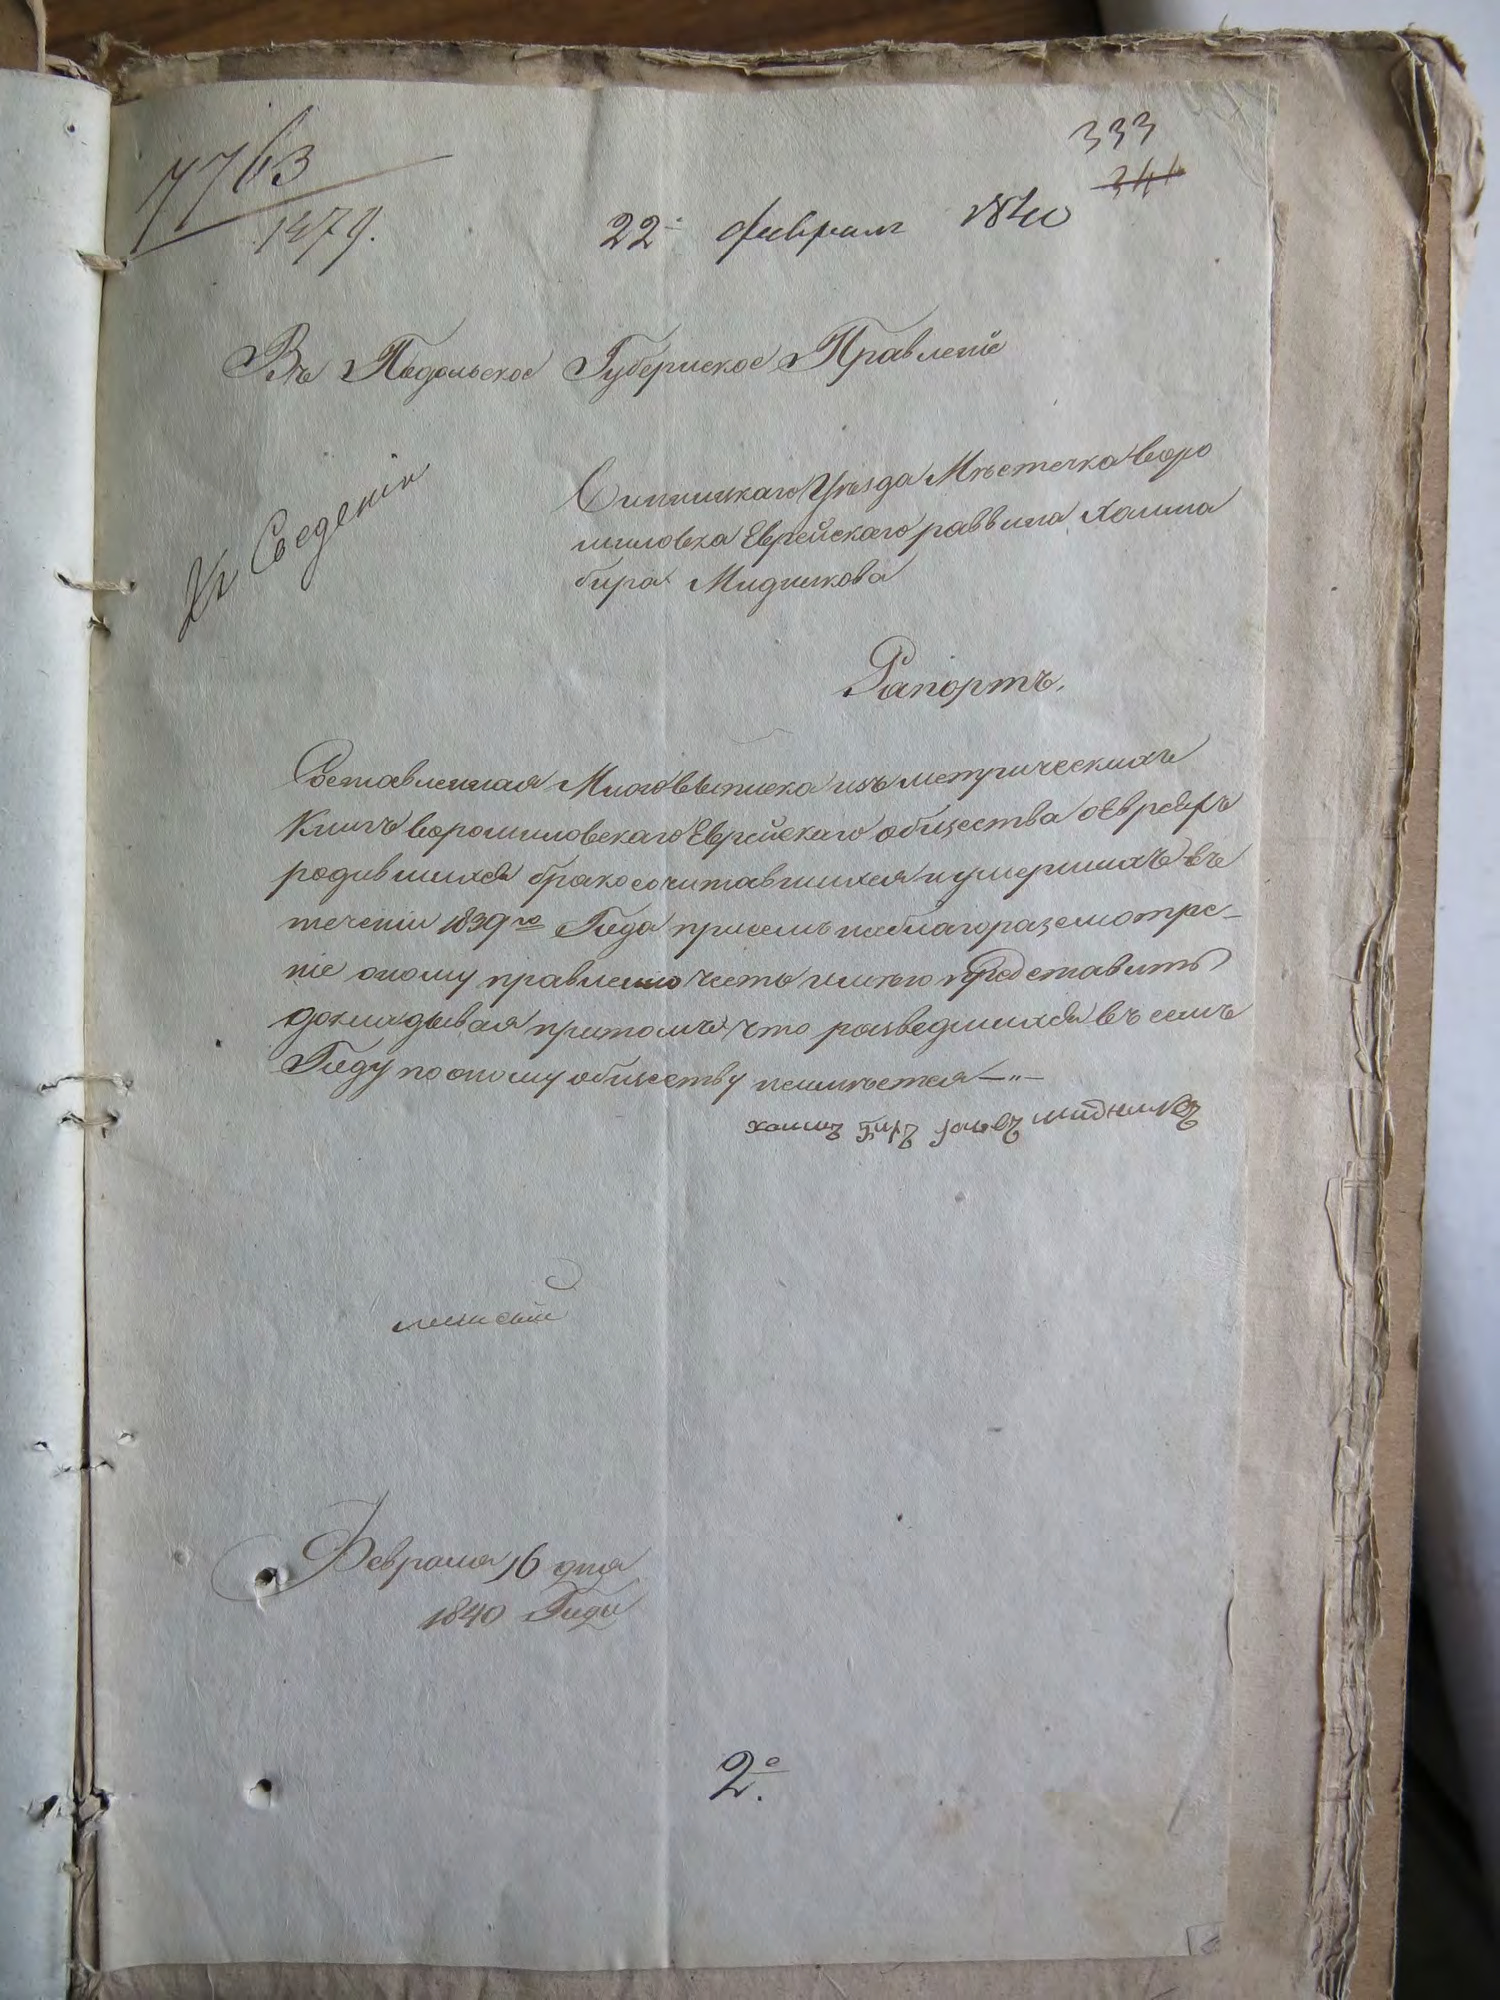 333
7763
344
1479.
22 февраля 1840
Въ Подольское Губернское Правленіе
Къ Сведению
Винницкаго Уѣзда Мѣстечка Воро
шиловка Еврейскаго раввина Хаима
бера Мидникова
Рапортъ.
Составленная Мною выписка изъ метрическихъ
Книгъ ворошиловскаго Еврейскаго общества о Евреяхъ
родившихся бракосочитавшихся и умершихъ въ
теченіи 1839го Года присемъ на благоразсмотре-
ніе оному правленію честь имѣю представить
докладывая притомъ что разведшихся въ семъ
Году по оному обществу неимѣется
хаимъ беръ мидникъ
Февраля 16 дня
1840 Года
2е.